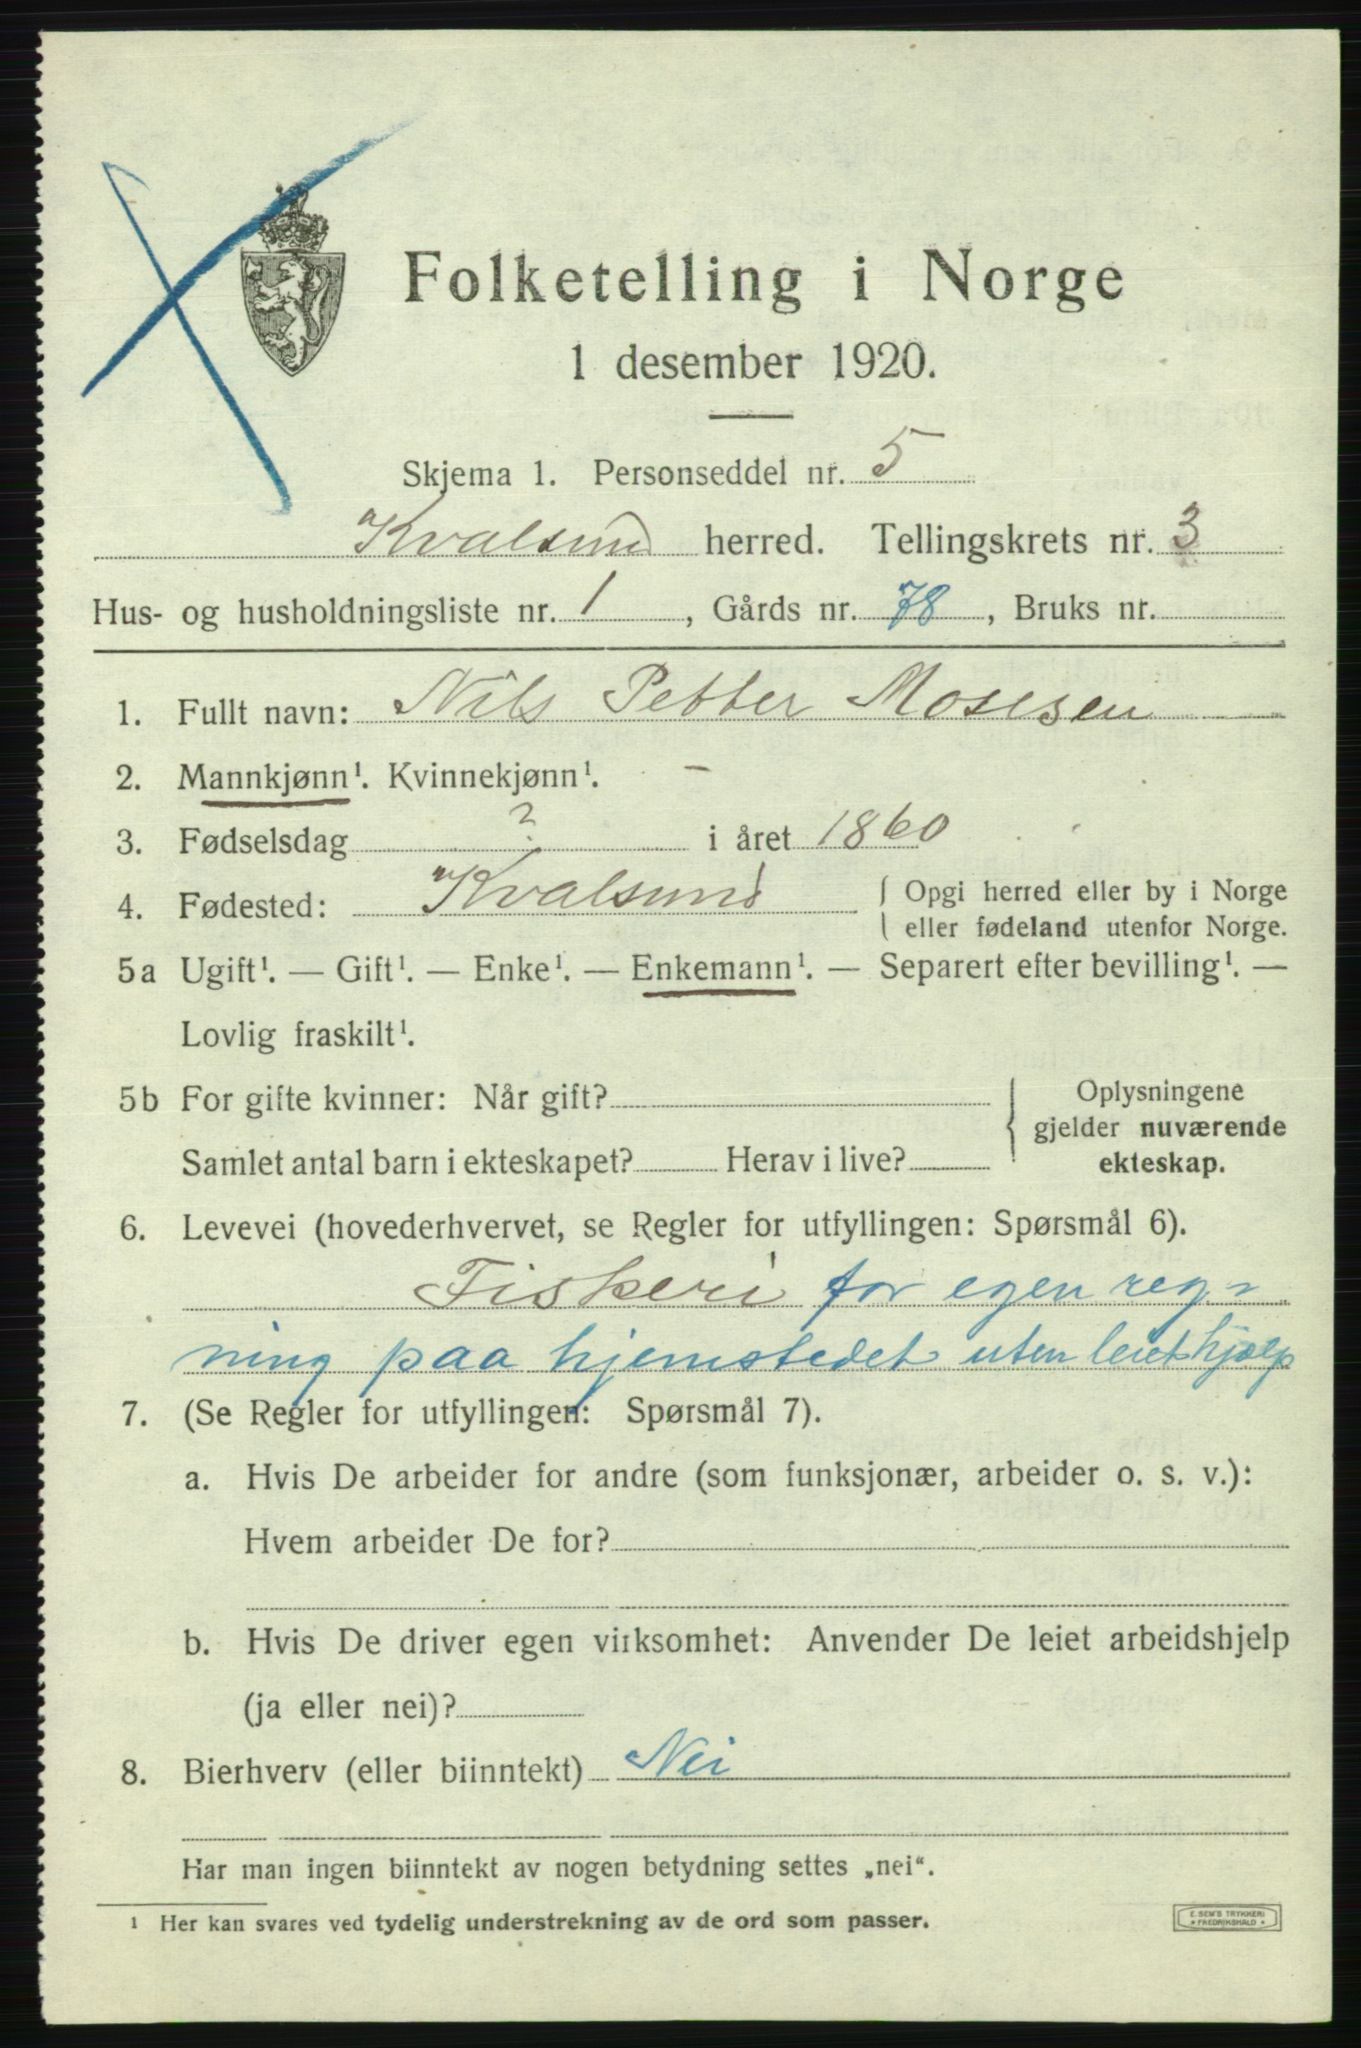 Folketelling i Norge
1 desember 1920.
Skjema 1. Personseddel nr. 5
Kvalsund herred. Tellingskrets nr. 3
Hus- og husholdningsliste nr. 1, Gårds nr. 78, Bruks nr.
1. Fullt navn: Nils Petter Mosesen
2. Mannkjønn¹. Kvinnekjønn¹. –
3. Fødselsdag ? i året 1860
4. Fødested: Kvalsund { Opgi herred eller by i Norge
eller fødeland utenfor Norge.
5a Ugift¹. — Gift¹. — Enke¹. — Enkemann¹. — Separert efter bevilling¹. —
Lovlig fraskilt¹.
5b For gifte kvinner: Når gift? } Oplysningene
gjelder nuværende
Samlet antal barn i ekteskapet? Herav i live? ekteskap.
6. Levevei (hovederhvervet, se Regler for utfyllingen: Spørsmål 6).
Fiskeri for egen reg-
ning paa hjemstedet uten leiet hjælp
7. (Se Regler for utfyllingen: Spørsmål 7).
a. Hvis De arbeider for andre (som funksjonær, arbeider o. s. v.):
Hvem arbeider De for?
b. Hvis De driver egen virksomhet: Anvender De leiet arbeidshjelp
(ja eller nei)?
8. Bierhverv (eller biinntekt) Nei
Har man ingen biinntekt av nogen betydning settes „nei“.
¹ Her kan svares ved tydelig understrekning av de ord som passer.
E. SEM'S TRYKKERI
* FREDRIKSHALD *